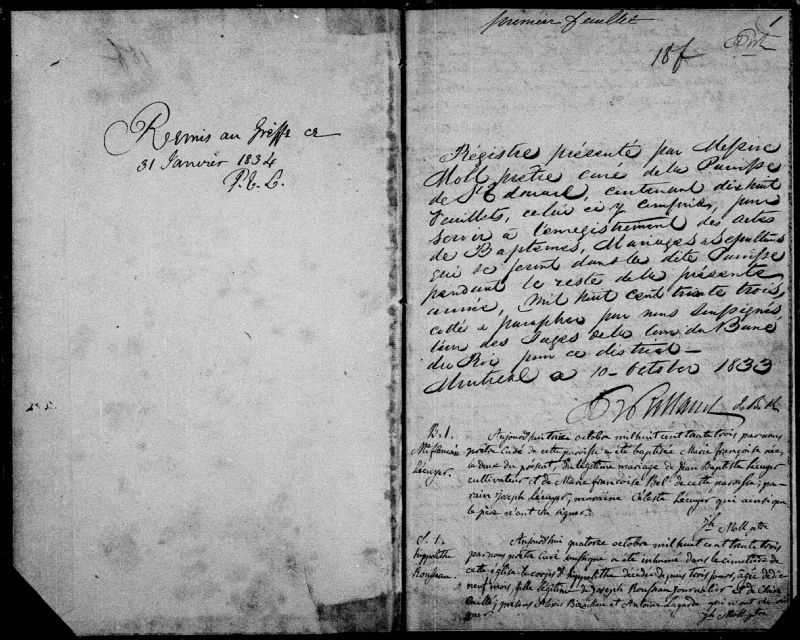 Remis au Greffe ce
31 Janvier 1834
P.E.L.
premier feuillet
1
18 f
Régistre présenté par Messire
Moll prêtre curé de la Paroisse
de St Edouard, contenant dix huit
feuillets, celui ci y compris, pour
servir à l'enregistrement des actes
de Baptemes, Mariages & Sepultures
qui se feront dans la dite Paroisse
pendant le reste de la présente
année, mil huit cent trente trois,
cotté & paraphé par nous soussigné,
l'un des Juges de la Cour du Banc
du Roi pour ce district —
Montreal ce 10 October 1833
B. 1.
Mie françoise
Lécuyer.
Aujourd'hui octobre mil huit cent trente trois par nous
prêtre Curé de cette paroisse a été baptisée Marie françoise née
le deux du présent, du légitime mariage de Jean Baptiste Lécuyer
cultivateur et de Marie francoise de cette paroisse; pa-
rain Joseph Lécuyer, maraine Céleste Lécuyer qui ainsi que
le père n'ont su signer.
Jh Moll ptre
S. 1.
hyppolithe
Rousseau.
Aujourd'hui quatorze octobre mil huit cent trente trois
par nous prêtre Curé soussigné a été inhumé dans le cimetière de
cette église le corps d'hyppolithe décédé depuis trois jours, agé de dix
neuf mois, fils légitime de Joseph Rousseau journalier et de
présens Alexis et Antoine Lagarde qui n'ont su si-
gner.
Jh Moll ptre